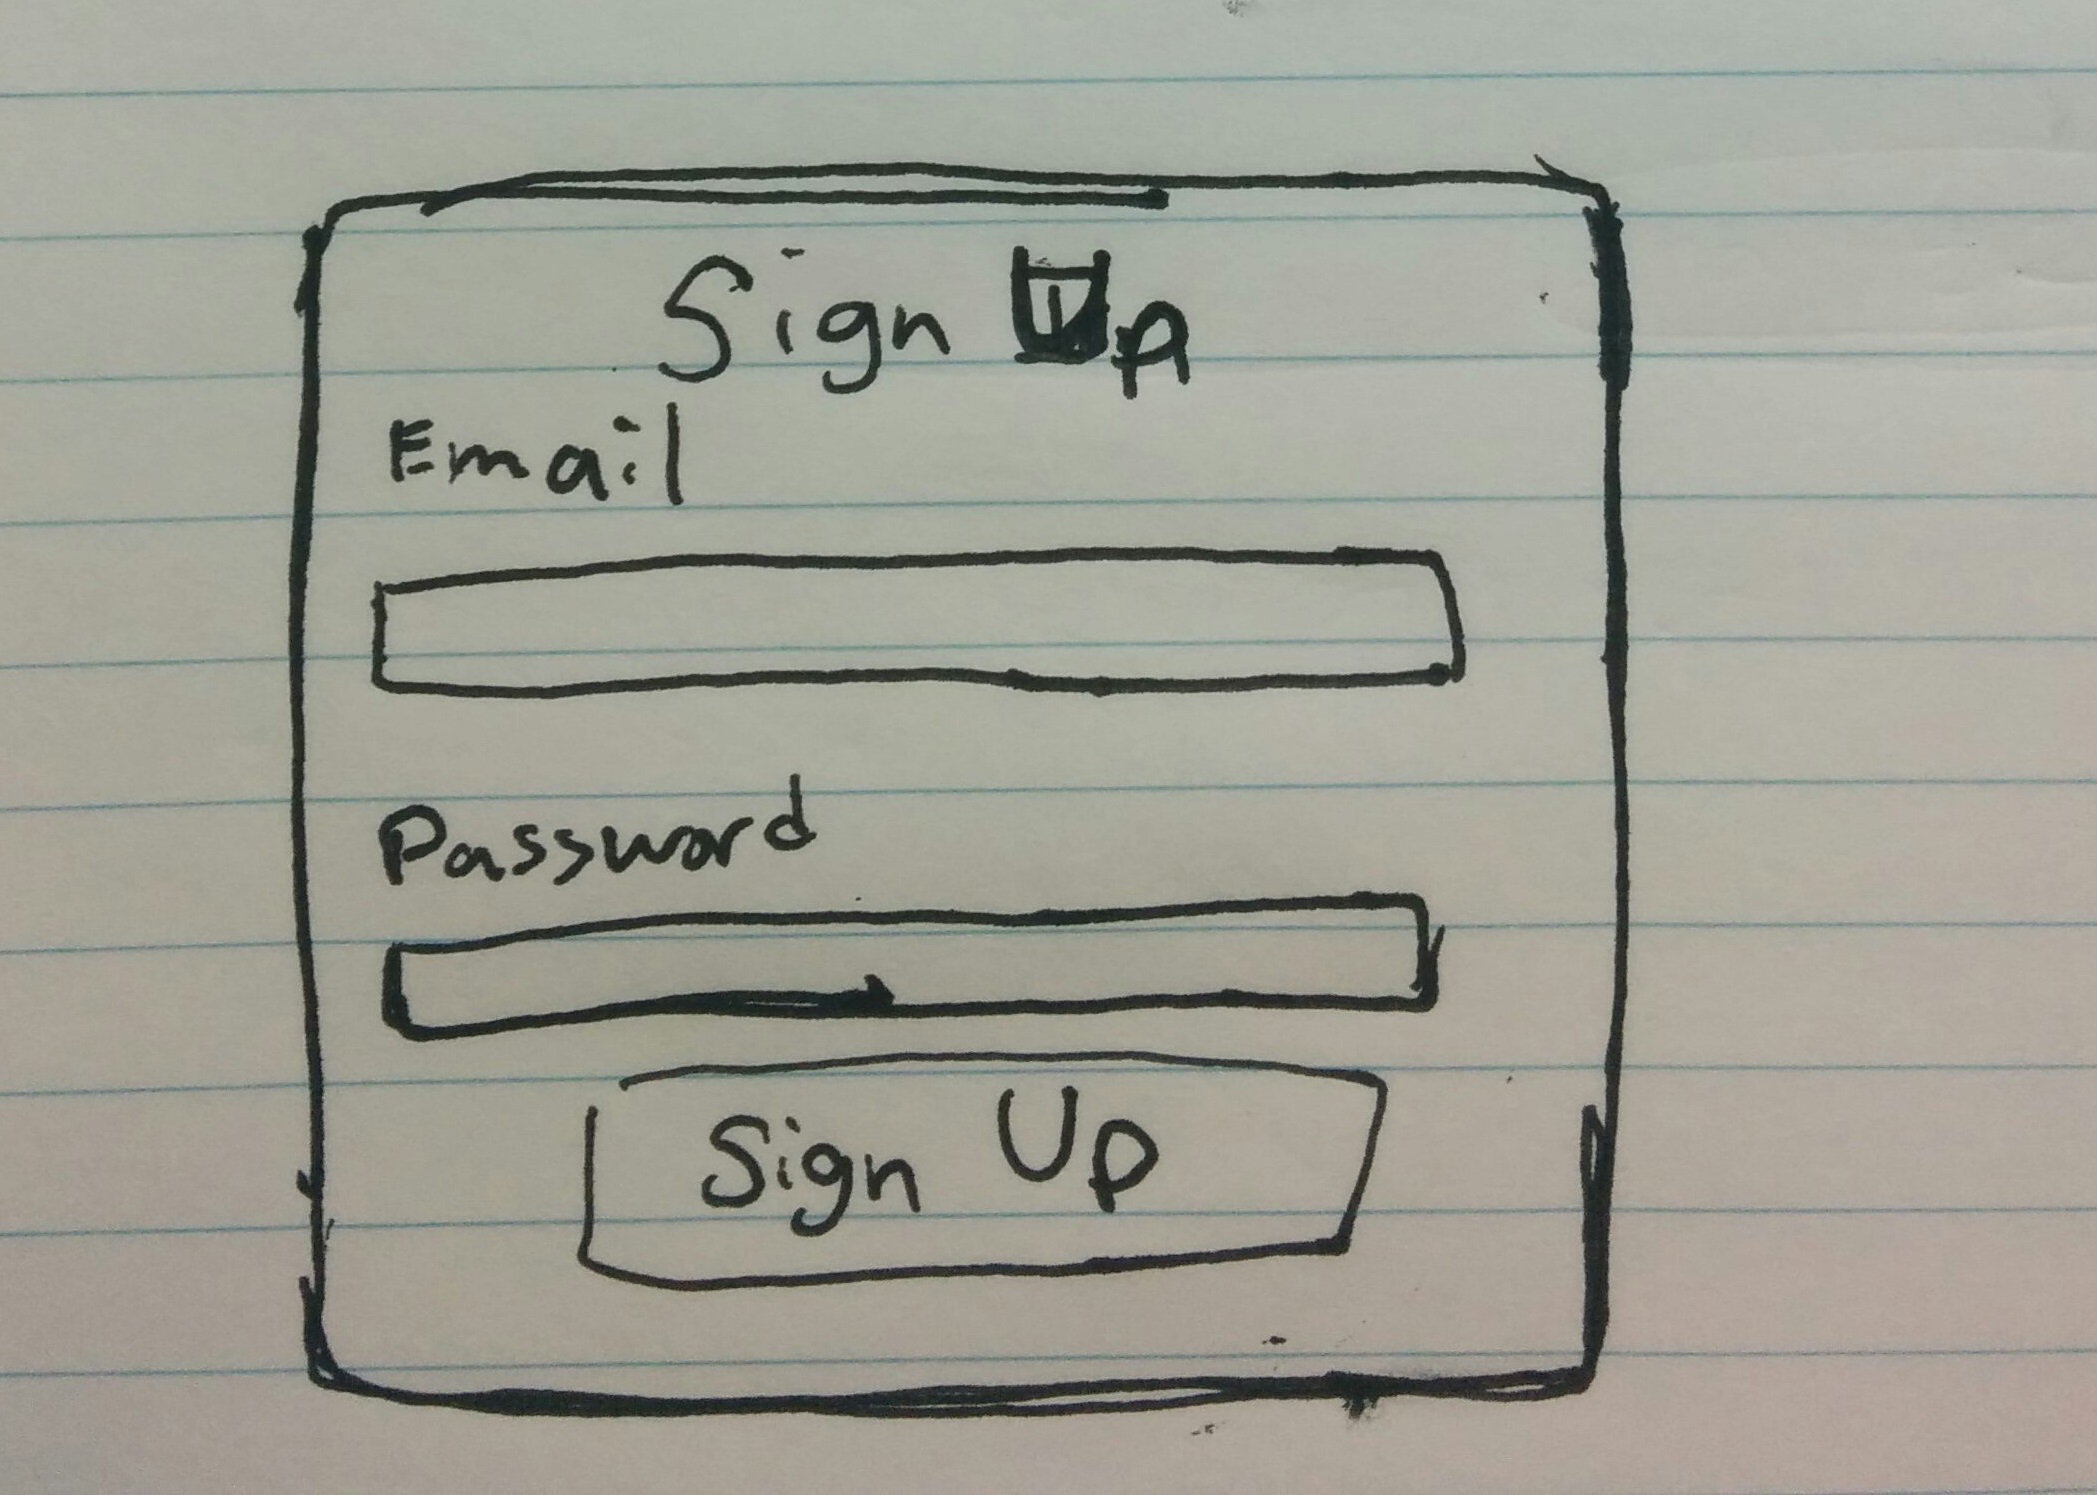 Sign Up
Email
Password
Sign Up